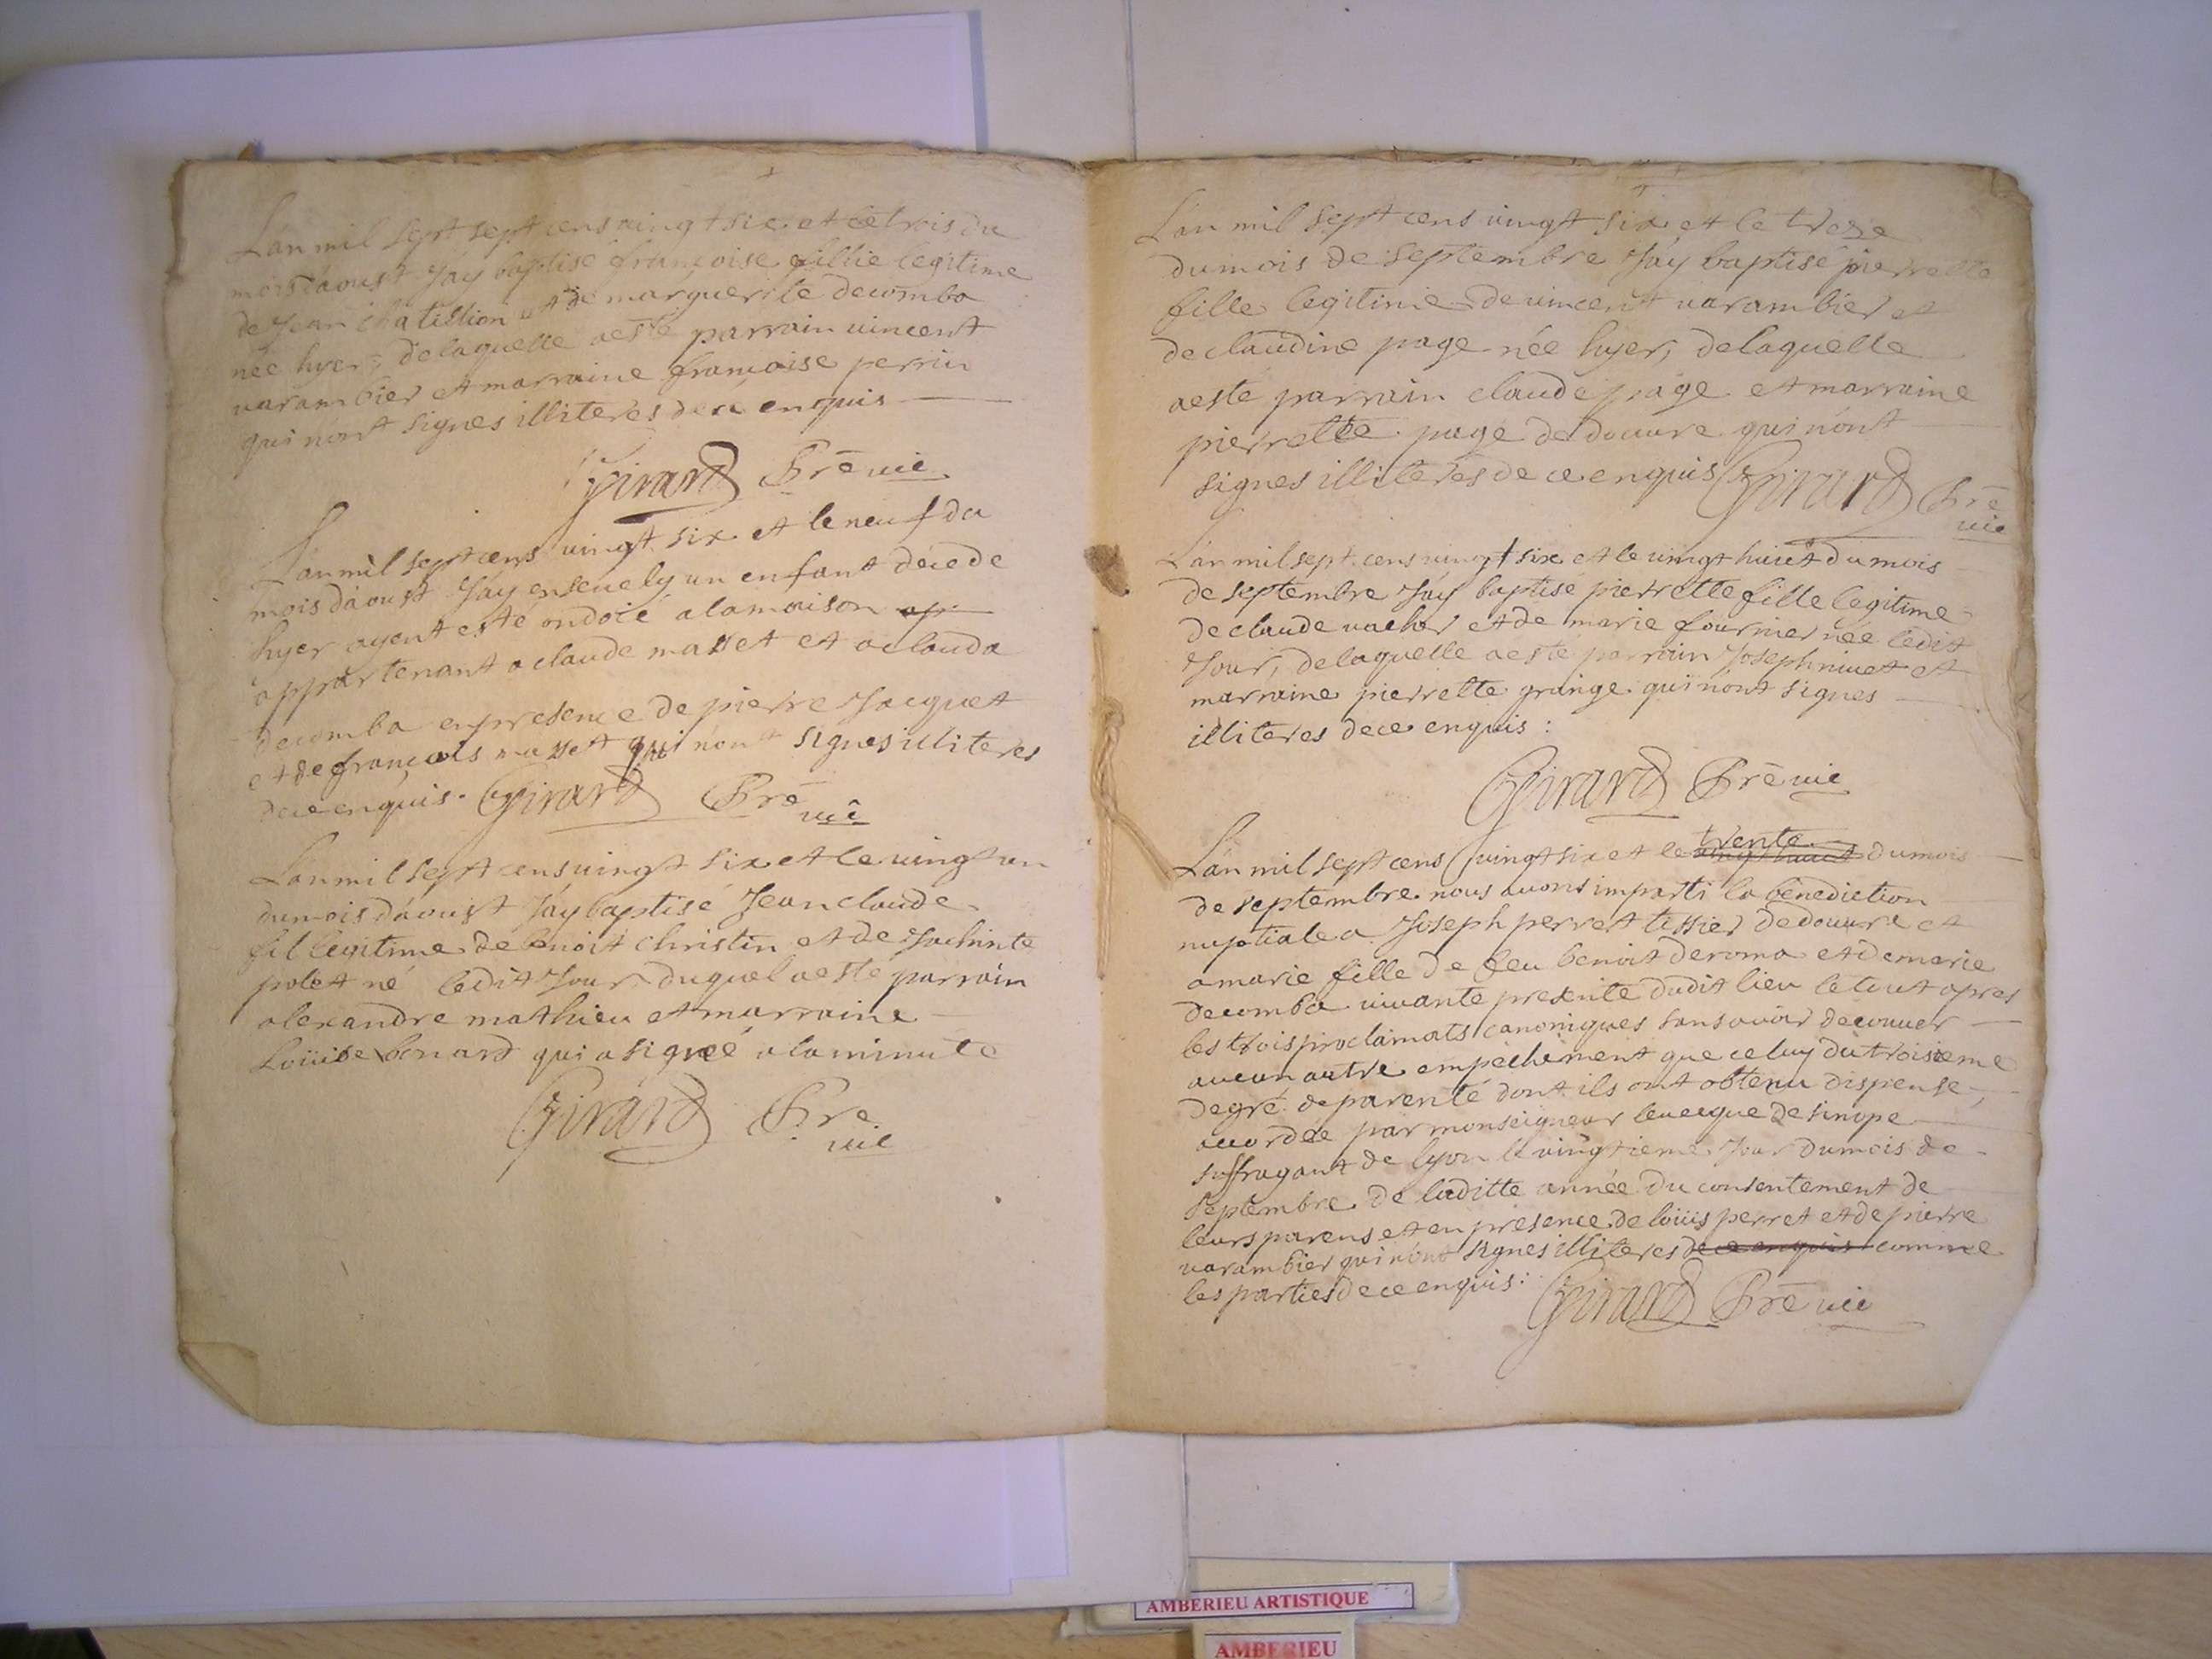 Lan mil sept sept cens vingt six et le trois du
mois daoust Jáy baptisé françoise fillie legitime
de Jean chatillion et de marguerite decomba
née hyer, delaquelle aesté parrain vincent
varambier et marraine françoise perrin
qui nont signes illiteres de ce enquis
Girard Prē vic
Lan mil sept cens vingt six et le neuf du
mois daoust Jáy enseuely un enfant décédé
hyer ayant esté ondoié a la maison ap
appartenant a claude masset et a clauda
decomba en presence de pierre Jacquet
et de françois masset qui nont signes illiteres
de ce enquis. Girard Prē
vic
Lan mil sept cens vingt six et le vingt un
du mois daoust Jáy baptisé Jean claude
fil legitime de benoit christin et de Jachinte
polet né ledit Jour, duquel a esté parrain
alexandre mathieu et marraine
Loüise bonard qui a signé a la minute
Girard Pre
vic
Lan mil sept cens vingt six et le treze
du mois de septembre Jáy baptisé pierrette
fille legitime de vincent varambier et
de claudine page née hyer, delaquelle
aesté parrain claude page et marraine
pierrette page de douvre qui nont
signes illiteres de ce enquis Girard Prē
vic
Lan mil sept cens vingt six et le vingt huict du mois
de septembre Jáy baptisé pierrette fille legitime
de claude vacher et de marie fournier née ledit
Jour, delaquelle aesté parrain Joseph nivet et
marraine pierrette grange qui nont signes
illiteres de ce enquis :
Girard Prē vic
trente
Lan mil sept cens vingt six et le vingt huict du mois
de septembre nous avons imparti la bénédiction
nuptiale a Joseph perret tissier de douvre et
a marie fille de feu benoit deroma et de marie
decomba vivante presente dudit lieu le tout apres
les trois proclamats canoniques sans avoir decouver
aucun autre empechement que celuy du troisieme
degré de parenté dont ils ont obtenu dispense,
accordée par monseigneur leveque de sinope
suffragant de lyon le vingtieme Jour du mois de
septembre de laditte année du consentement de
leurs parens et en presence de loüis perret et de pierre
varambier qui nont signes illiteres de ce enquis comme
les parties de ce enquis : Girard Prē vic
AMBERIEU ARTISTIQUE
AMBERIEU